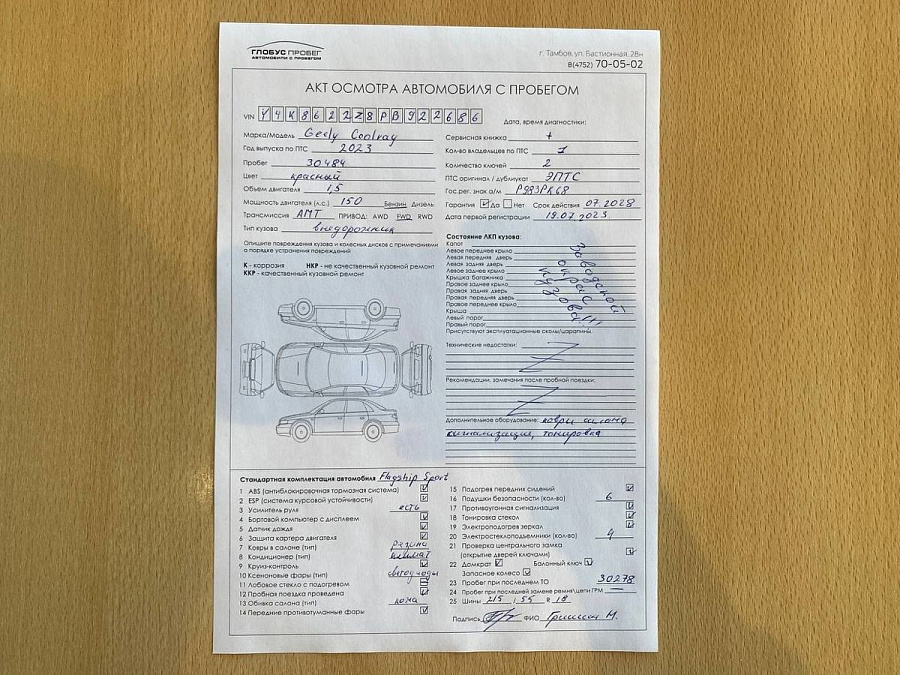 ГЛОБУС ПРОБЕГ
АВТОМОБИЛИ С ПРОБЕГОМ
г. Тамбов, ул. Бастионная, 28н
8(4752) 70-05-02
АКТ ОСМОТРА АВТОМОБИЛЯ С ПРОБЕГОМ
VIN Y4K8622Z8PB922686
Дата, время диагностики:
Марка/Модель Geely Coolray
Год выпуска по ПТС 2023
Пробег 30484
Цвет красный
Объем двигателя 1,5
Мощность двигателя (л.с.) 150 Бензин Дизель
Трансмиссия АМТ ПРИВОД: AWD FWD RWD
Тип кузова внедорожник
Сервисная книжка +
Кол-во владельцев по ПТС 1
Количество ключей 2
ПТС оригинал / дубликат ЭПТС
Гос.рег. знак а/м Р983РК68
Гарантия Да Нет Срок действия 07.2028
Дата первой регистрации 19.07.2023
Опишите повреждения кузова и колесных дисков с примечаниями
о порядке устранения повреждений
К - коррозия НКР - не качественный кузовной ремонт
ККР - качественный кузовной ремонт
Состояние ЛКП кузова:
Капот
Левое переднее крыло
Левая передняя дверь
Левая задняя дверь
Левое заднее крыло
Крышка багажника
Правое заднее крыло
Правая задняя дверь
Правая передняя дверь
Правое переднее крыло
Крыша
Левый порог
Правый порог
Заводской
окрас
кузова!!!
Присутствуют эксплуатационные сколы/царапины.
Технические недостатки:
Рекомендации, замечания после пробной поездки:
Дополнительное оборудование: ковры салона
сигнализация, тонировка
Стандартная комплектация автомобиля Flagship Sport
1 ABS (антиблокировочная тормозная система)
2 ESP (система курсовой устойчивости)
3 Усилитель руля есть
4 Бортовой компьютер с дисплеем
5 Датчик дождя
6 Защита картера двигателя
7 Ковры в салоне (тип) резина
8 Кондиционер (тип) климат
9 Круиз-контроль
10 Ксеноновые фары (тип) светодиоды
11 Лобовое стекло с подогревом
12 Пробная поездка проведена
13 Обивка салона (тип) кожа
14 Передние противотуманные фары
15 Подогрев передних сидений
16 Подушки безопасности (кол-во) 6
17 Противоугонная сигнализация
18 Тонировка стекол
19 Электроподогрев зеркал
20 Электростеклоподъемники (кол-во) 4
21 Проверка центрального замка
(открытие дверей ключами)
22 Домкрат Балонный ключ
Запасное колесо
23 Пробег при последнем ТО 30278
24 Пробег при последней замене ремня/цепи ГРМ —
25 Шины 215 / 55 R 18
Подпись ФИО Гришин М.